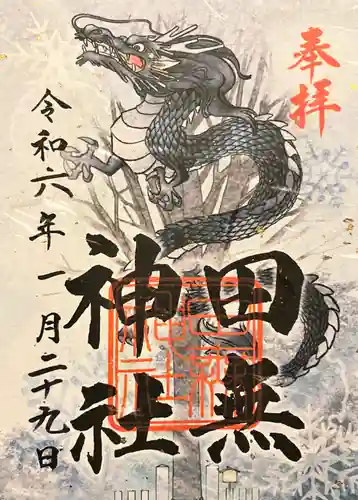 奉拝
田無
神社
令和六年一月二十九日